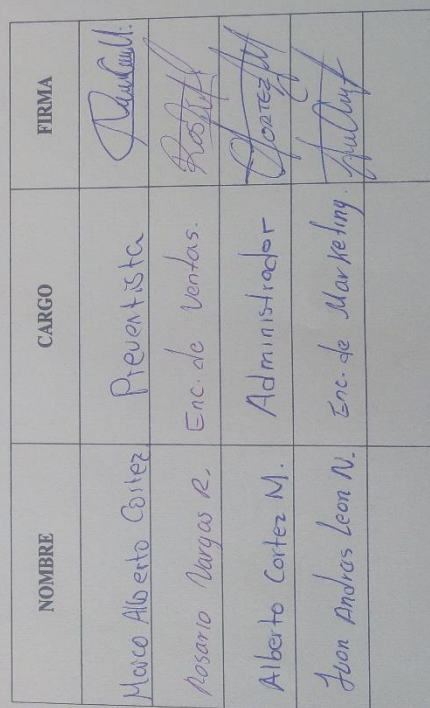 NOMBRE CARGO FIRMA
Marco Alberto Cortez Preventista
Rosario Vargas R. Enc. de Ventas.
Alberto Cortez M. Administrador CORTEZ M
Juan Andras Leon N. Enc. de Marketing.